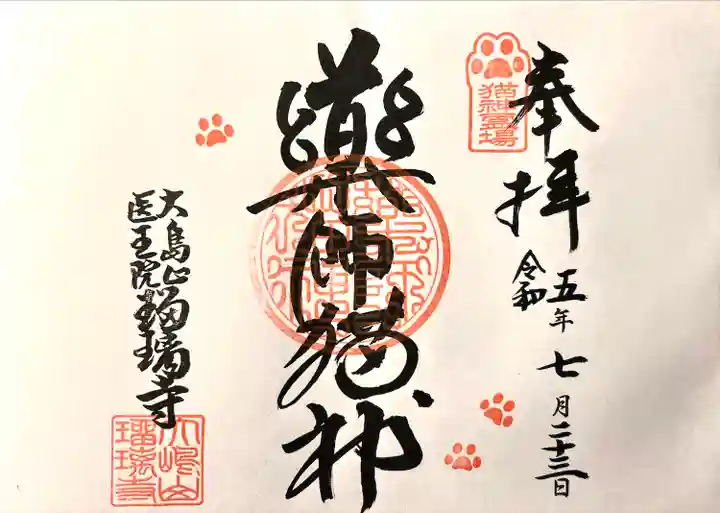 奉拝
令和五年七月二十三日
猫神霊場
薬師猫神
大島山
医王院
瑠璃寺
大嶋山
瑠璃寺